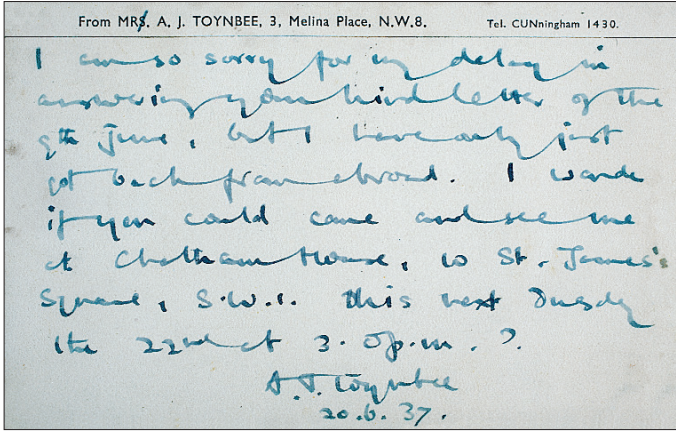 From MRS. A. J. TOYNBEE, 3, Melina Place, N.W.8. Tel. CUNningham 1430.
I am so sorry for my delay in
answering your kind letter of the
9th June, but I have only just
got back from abroad. I wonder
if you could come and see me
at Chatham House, 10 St. James's
Square, S.W.1. this next Tuesday
the 22nd at 3.0 p.m.?
A. J. Toynbee
20.6.37.